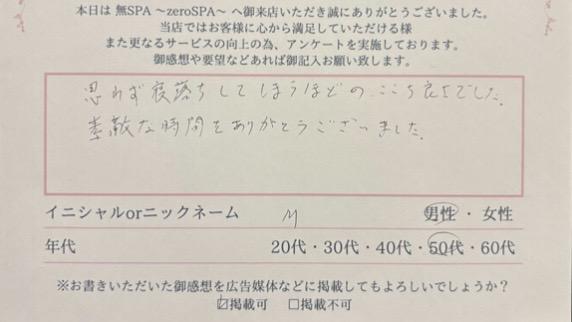 本日は 無SPA ～zeroSPA～ へ御来店いただき誠にありがとうございました。
当店ではお客様に心から満足していただける様
また更なるサービスの向上の為、アンケートを実施しております。
御感想や要望などあれば御記入お願い致します。
思わず寝落ちしてしまうほどのここち良さでした。
素敵な時間をありがとうございました。
イニシャルorニックネーム M 男性・女性
年代 20代・30代・40代・50代・60代
※お書きいただいた御感想を広告媒体などに掲載してもよろしいでしょうか？
☑掲載可 □掲載不可